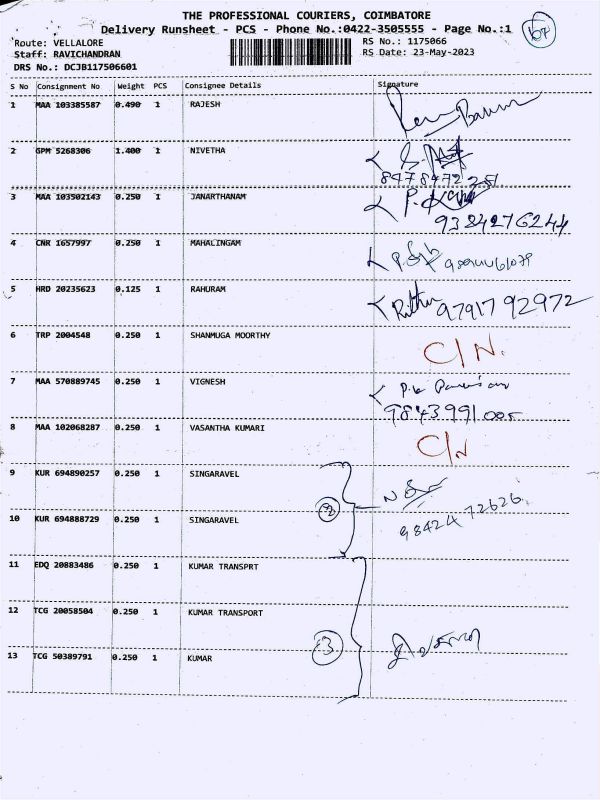 THE PROFESSIONAL COURIERS, COIMBATORE
Delivery Runsheet - PCS - Phone No.:0422-3505555 - Page No.:1
Route: VELLALORE
RS No.: 1175066
Staff: RAVICHANDRAN
RS Date: 23-May-2023
DRS No.: DCJB117506601
S No Consignment No Weight PCS Consignee Details Signature
1 MAA 103385587 0.490 1 RAJESH
2 GPM 5268306 1.400 1 NIVETHA
8478472251
3 MAA 103502143 0.250 1 JANARTHANAM
9384276244
4 CNR 1657997 0.250 1 MAHALINGAM
5 HRD 20235623 0.125 1 RAHURAM
9791792972
6 TRP 2004548 0.250 1 SHANMUGA MOORTHY
C/N.
7 MAA 570889745 0.250 1 VIGNESH
9843991005
8 MAA 102068287 0.250 1 VASANTHA KUMARI
C/N
9 KUR 694890257 0.250 1 SINGARAVEL
2
10 KUR 694888729 0.250 1 SINGARAVEL
9842472626
11 EDQ 20883486 0.250 1 KUMAR TRANSPRT
12 TCG 20058504 0.250 1 KUMAR TRANSPORT
3
13 TCG 50389791 0.250 1 KUMAR